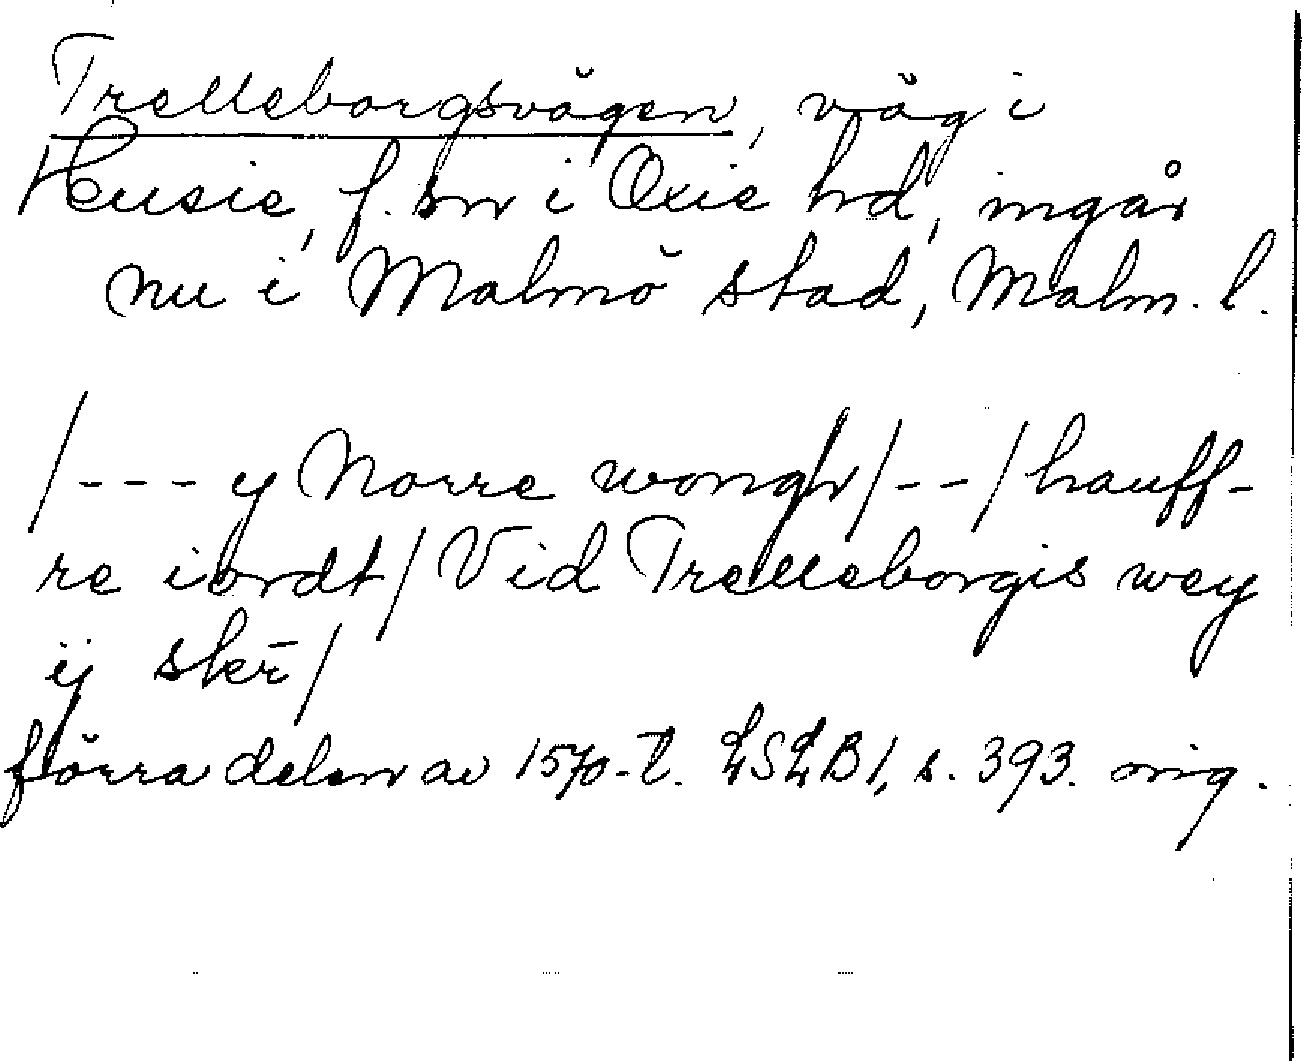 Trelleborgsvägen, väg i
Husie, f. sn i Oxie hd, ingår
nu i Malmö stad, Malm. l.
/--- y Norre wongh/--/hauff-
re iordt/Vid Trelleborgis wey
ij skē/
förra delen av 1570-t. LSLB 1, s. 393. orig.